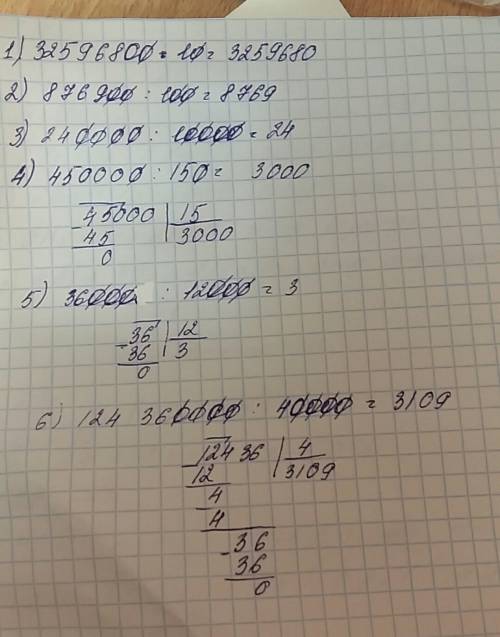 1) 32596800 : 10 = 3259680
2) 876900 : 100 = 8769
3) 240000 : 10000 = 24
4) 450000 : 150 = 3000
45000 | 15
45 3000
0
5) 36000 : 12000 = 3
36 | 12
36 3
0
6) 124 360000 : 40000 = 3109
12436 | 4
12 3109
4
4
36
36
0